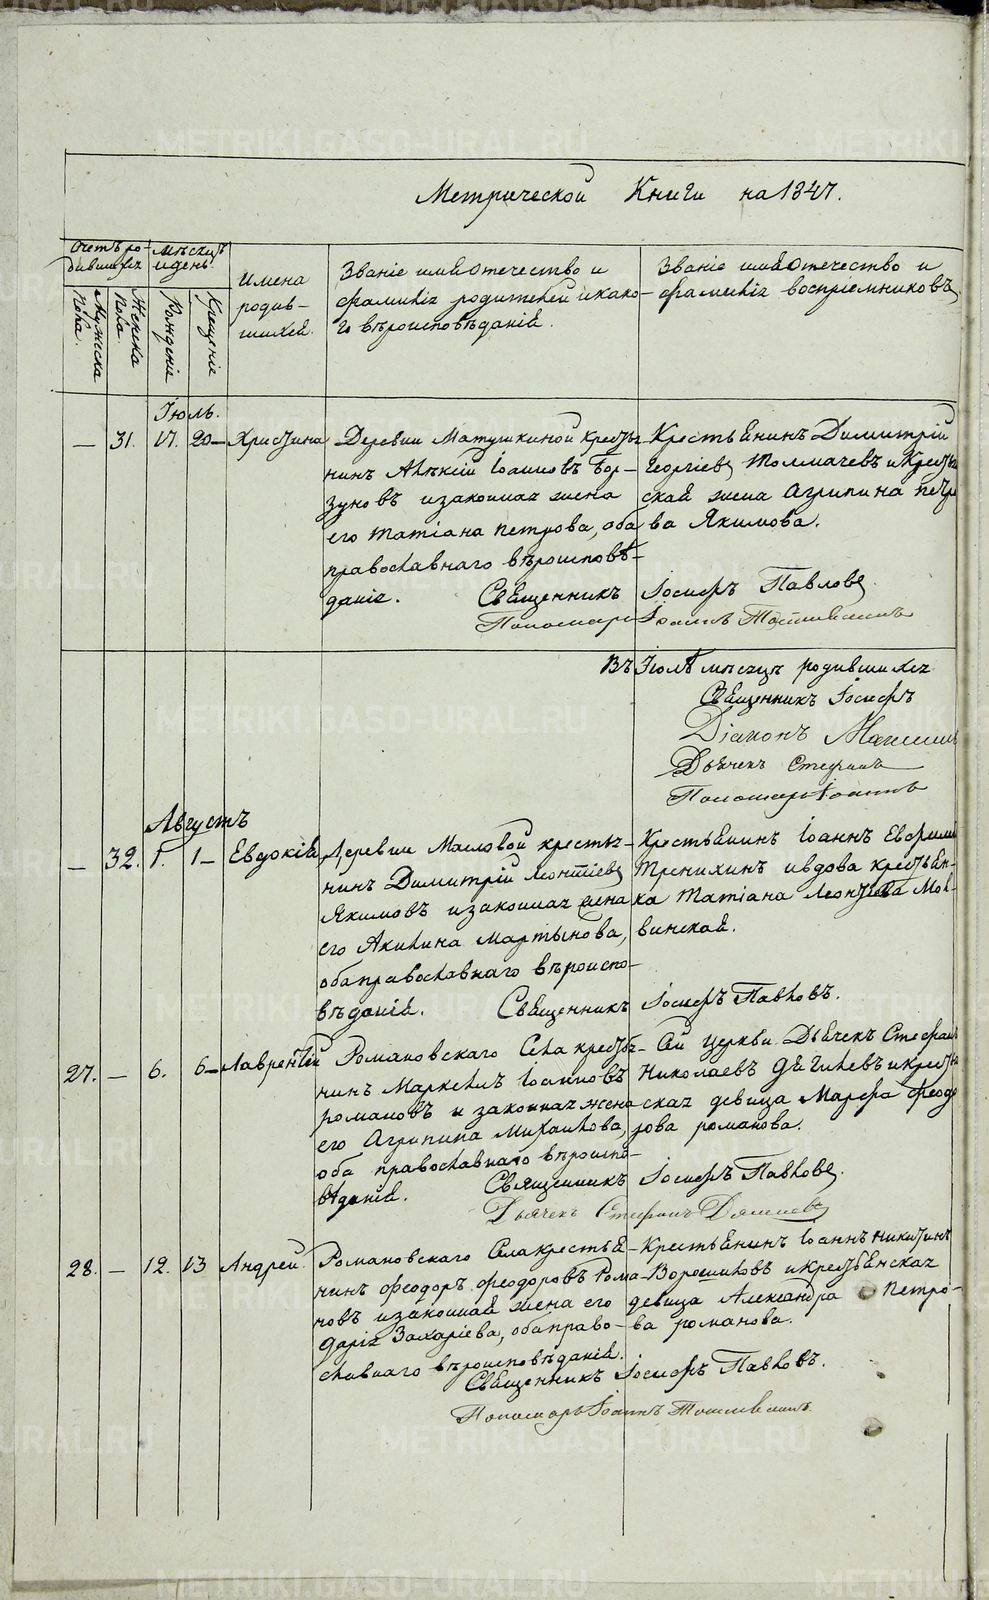 Метрической Книги на 1847.
Счетъ ро-
дившихъ
Мѣсяцъ
и день.
Мужеска
Пола.
Женска
Пола.
Рожденіе
Крещеніе
Имена
родив-
шихся.
Званіе имя отечество и
фамилія родителей и како-
го вѣроисповѣданія.
Званіе имя отечество и
фамилія воспріемниковъ
Іюль.
— 31. 17. 20 — Христина
Деревни Матушкиной кресть-
нинъ Алѣксій Іоанновъ Бор-
зуновъ и законная жена
его Татіана Петрова, оба
православнаго вѣроисповѣ-
данія.
Крестьянинъ Димитрій
Георгіевъ Толмачевъ и Крестьян
ская жена Агрипина Петро
ва Якимова.
Священникъ Іосифъ Павловъ
Пономарь Іоаннъ
Въ Іюлѣ мѣсяцѣ родившихся
Священникъ Іосифъ
Діаконъ
Дьячекъ Стефанъ
Пономарь Іоаннъ
Августъ
— 32. 1. 1 — Евдокія
Деревни Масловой крестья-
нинъ Димитрій Леонтіевъ
Якимовъ и законная жена
его Акилина Мартынова,
оба православнаго вѣроиспо-
вѣданія.
Крестьянинъ Іоаннъ Евфимі
Тренихинъ и вдова крестьян-
ка Татіана Леонтьева Мок-
винская.
Священникъ Іосифъ Павловъ.
27. — 6. 6 — Лаврентій
Романовскаго Села кресть-
нинъ Маркелъ Іоанновъ
Романовъ и законная жена
его Агрипина Михаилова,
оба православнаго вѣроиспо-
вѣданія.
Сей церкви Дьячекъ Стефанъ
Николаевъ Дягилевъ и крестья
ская девица Марфа Феодо
рова Романова.
Священникъ Іосифъ Павловъ.
Дьячекъ Стефанъ Дягилевъ
28. — 12. 13 Андрей
Романовскаго Села крестья-
нинъ Феодоръ Феодоровъ Рома-
новъ и законная жена его
Дарія Захаріева, оба право-
славнаго вѣроисповѣданія.
Крестьянинъ Іоаннъ Никитинъ
Ворошиловъ и крестьянская
девица Александра Петро-
ва Романова.
Священникъ Іосифъ Павловъ.
Пономарь Іоаннъ
METRIKI.GASO-URAL.RU